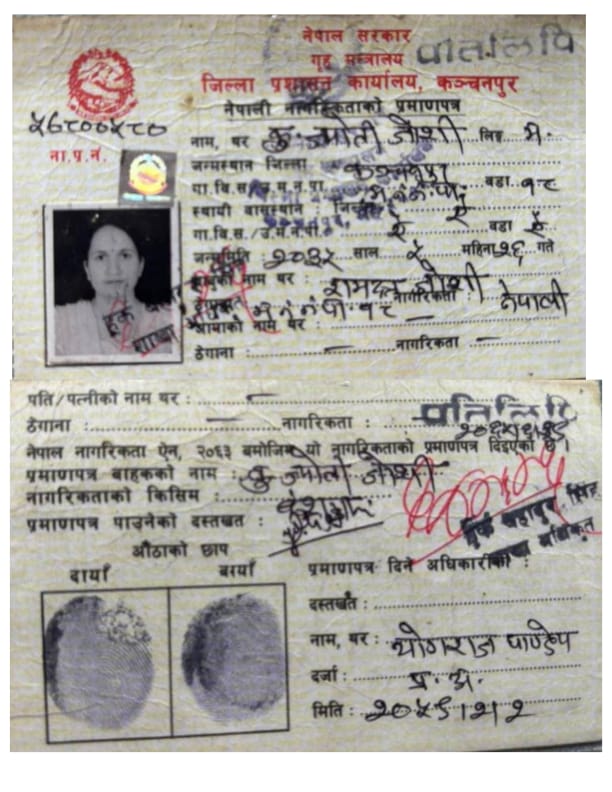 नेपाल सरकार
गृह मन्त्रालय
प्रतिलिपि
जिल्ला प्रशासन कार्यालय, कञ्चनपुर
नेपाली नागरिकताको प्रमाणपत्र
ना.प्र.नं.
नाम, थर : कु. ज्योती जोशी लिङ्ग म.
जन्मस्थान जिल्ला कञ्चनपुर
गा.वि.स./उ.म.न.पा. भी.नं.न.पा. वडा १८
स्थायी वासस्थान : जिल्ला ऐ ऐ
गा.वि.स./उ.म.न.पा. ऐ वडा ऐ
जन्ममिति : २०३५ साल ५ महिना २६ गते
बाबुको नाम थर : रामदत्त जोशी
नागरिकता : नेपाली
आमाको नाम थर : —
ठेगाना : — नागरिकता —
पति/पत्नीको नाम थर : —
ठेगाना : — नागरिकता :
प्रतिलिपि
नेपाल नागरिकता ऐन, २०६३ बमोजिम यो नागरिकताको प्रमाणपत्र दिइएको छ ।
प्रमाणपत्र बाहकको नाम : कु. ज्योती जोशी
नागरिकताको किसिम : वंशज
प्रमाणपत्र पाउनेको दस्तखत :
औंठाको छाप
दायाँ बायाँ
प्रमाणपत्र दिने अधिकारीको :
दस्तखत :
नाम, थर : योगराज पाण्डेय
दर्जा : प्र.अ.
मिति : २०५६।२।२